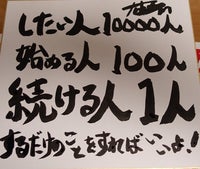 したい人10000人
始める人100人
続ける人1人
するだけのことをすればいいよ!